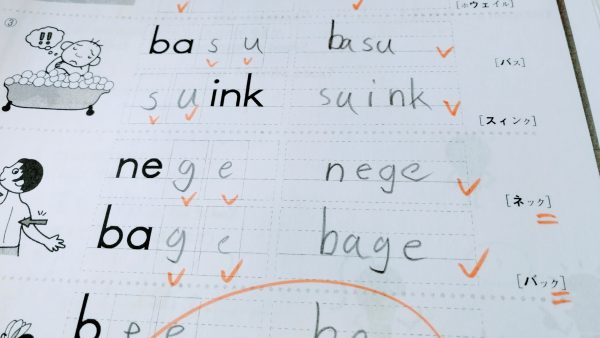 [ホウェイル]
③
!!
basu basu
[バス]
suink suink
[スィンク]
nege nege
[ネック]
bage bage
[バック]
bee be